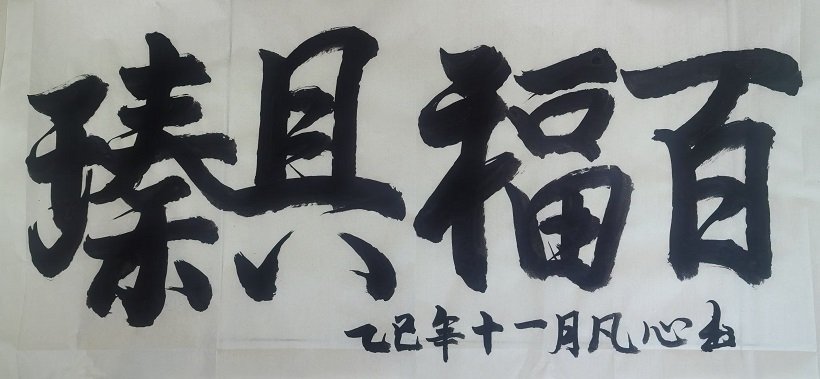 百福具瑧
乙巳年十一月凡心书